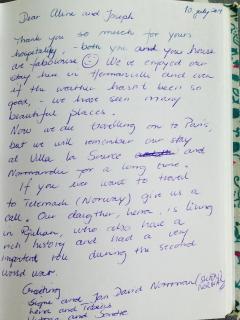 10. July 2014
Dear Aline and Joseph
Thank you so much for yours
hospitality, - both you and your house
are fabourouse ☺ We've enjoyed our
stay here in Hermanville and even
if the weather hasn't been so
good, - we have seen many
beautiful places.
Now we are travelling on to Paris,
but we will remember our stay
at Villa La Source and
Normandie for a long time.
If you ever want to travel
to Telemark (Norway) give us a
call. Our daughter, is living
in Rjukan, who also have a
rich history and had a very
important role during the second
world war.
Greetings
Signe and Jan David Norman
and Tobias
and